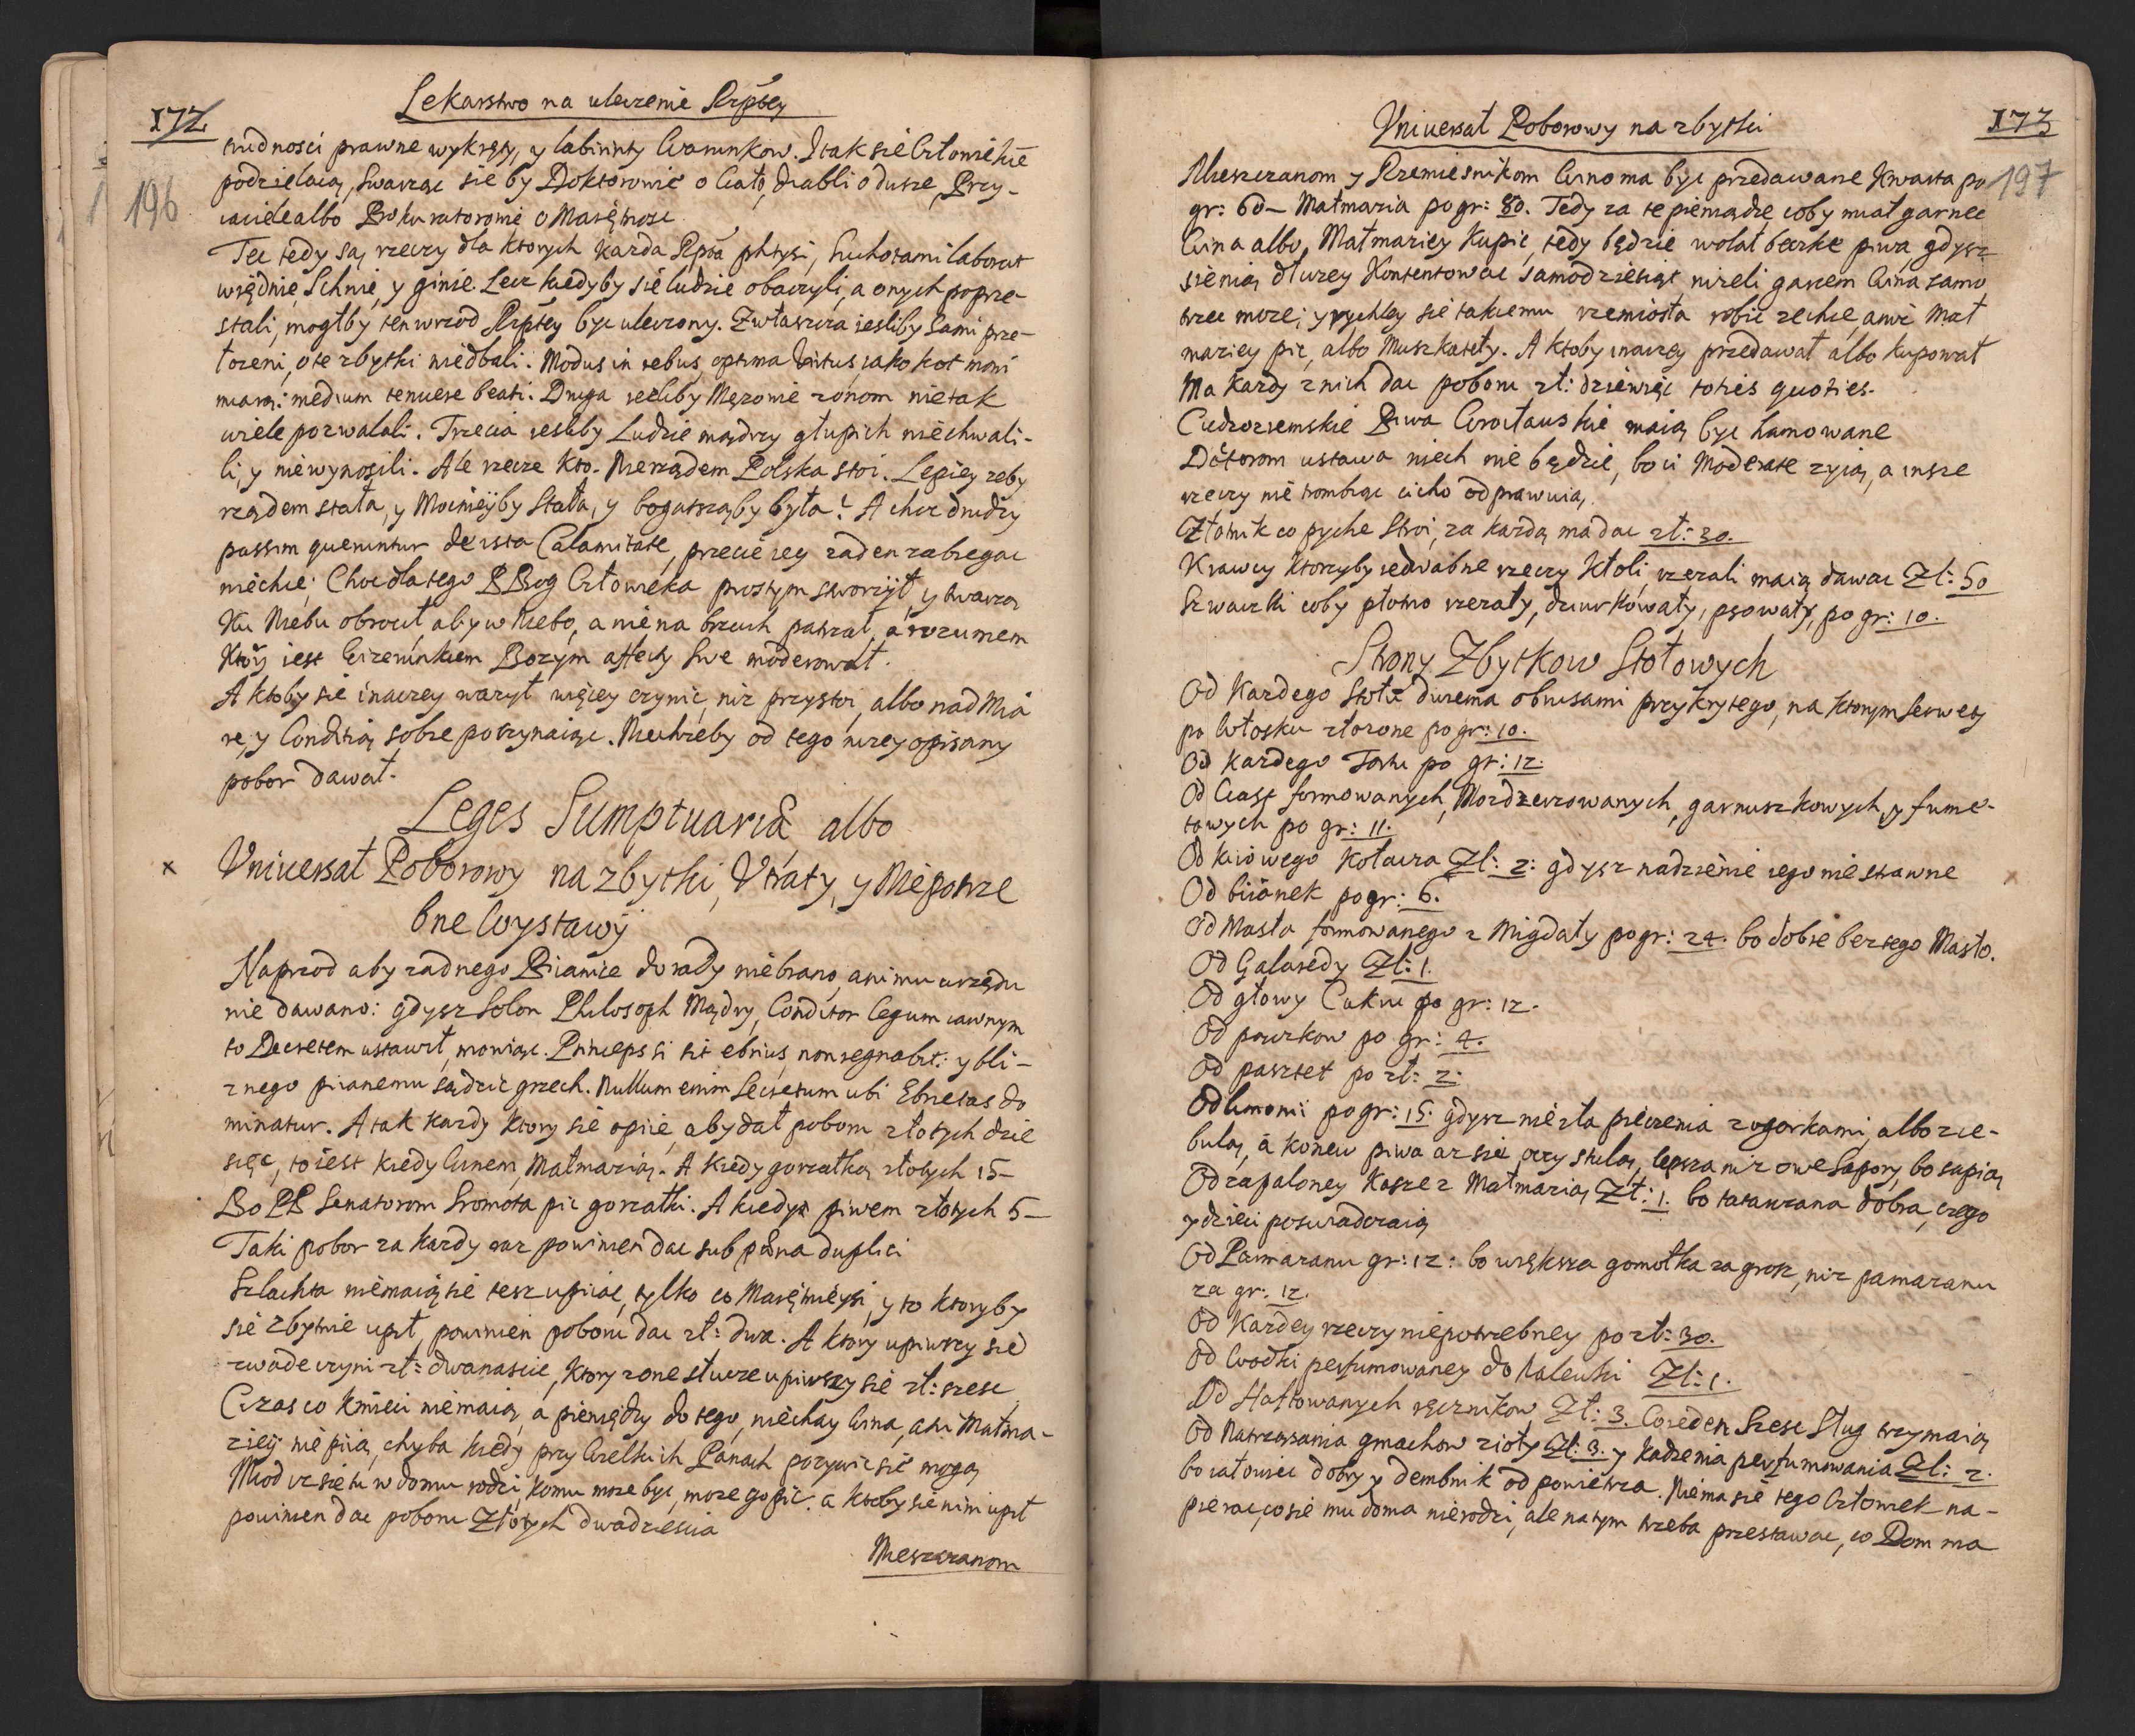 172
Lekarstwo na uleczenie Rzptey
196
trudnosci prawne wykręty, y labirinty Warunkow. I tak się Człowiekiē
podzielaią, swarząc się by Doktorowie o Ciało, diabli o dusze, Przy-
iaciele albo Prokuratorowie o Maiętnosc
Tec tedy są rzeczy dla ktorych kazda Rptā phtysi, suchotami laborat
więdnie schnie, y ginie. Lecz kiedyby się ludzie obaczyli, a onych poprze-
stali, mogłby ten wrzod Rzptey byc uleczony. Zwłaszcza iesliby sami prze-
łozeni, o te zbytki niedbali. Modus in rebus, optima virtus, iako kot mowi
miarą: medium tenuere beati. Druga iesliby Męzowie zonom nie tak
wiele pozwalali. Trzecia iesliby Ludzie mądrzy głupich niechwali-
li, y niewynosili. Ale rzecze kto. Nierządem Polska stoi. Lepiey zeby
rządem stała, y Mocnieyby stała, y bogatsząby była? A choc drudzy
passim queruntur de ista Calamitate, przecie iey zaden zabiegac
niechce; Choc dla tego P Bog Człowieka prostym stworzył, y twarzą
Ku Niebu obrocił, aby w Niebo, a nie na brzuch patrzał, a rozumem
Ktory iest Wizerunkiem Bozym affecty swe moderował.
A ktoby się inaczey wazył więcey czynic, niz przystoi, albo nad Mia
rę, y Conditią sobie poczynaiąc. Niechzeby od tego nizey opisany
pobor dawał.
Leges Sumptuariæ albo
x Vniuersał Poborowy na zbytki, Vtraty, y Niepotrze
bne Wystawy
Naprzod aby zadnego Piianice do rady niebrano, ani mu urzędu
nie dawano: gdysz Solon Philosoph Mądry, Conditor legum iawnym
to Decretem ustawił, mowiąc. Princeps si sit ebrius, non regnabit: y bli-
znego piianemu sądzic grzech. Nullum enim Secretum ubi Ebrietas do
minatur. A tak kazdy ktory się opiie, aby dał poboru złotych dzie
sięc, to iest kiedy Winem, Małmazią. A kiedy gorzałką złotych 15-
Bo PP Senatorom Sromota pic gorzałki. A kiedy piwem złotych 5-
Taki pobor za kazdy raz powinien dac sub pæna duplici
Szlachta niemaią się tesz upiiac, tylko co Maiętnieysi, y to ktoryby
się zbytnie upił, powinien poboru dac zł: dwa. A ktory upiwszy się
zwade uczyni zł: dwanascie, ktory zone stłucze upiwszy się zł: szesc
Czas co kmieci niemaią, a pieniędzy do tego, niechay Wina, ani Małma-
ziey nie piią, chyba kiedy przy Wielkich Panach pozywic się mogą
Miod isz się tu w domu rodzi, komu moze byc, moze go pic. a ktoby się nim upił
powinien dac poboru Złotych dwadziescia
Mieszczanom
Vniuersał Poborowy na zbytki
173
197
Mieszczanom y Rzemiesnikom Wino ma byc przedawane kwarta po
gr: 60- Małmazia po gr: 80. Tedy za te pieniądze coby miał garnec
Wina albo, Małmaziey kupic, tedy będzie wolał beczke piwa, gdysz
się nią dłuzey Kontentowac samodziesiąt nizeli garcem Wina samo
trzec moze; y rychley się takiemu rzemiosła robic zechce, anic Mał
maziey pic, albo Muszkateły. A ktoby inaczey przedawał albo kupował
Ma kazdy z nich dac poboru zł: dziewięc toties quoties.
Cudzoziemskie Piwa Wrocławskie maią byc hamowane
Dctorom ustawa niech nie będzie, boci Moderate zyią, a insze
rzeczy nie trombiąc cicho odprawuią.
Złotnik co pyche stroi, za kazdą ma dac zł: 30.
Krawcy ktorzyby iedwabne rzeczy kłoli, rzezali maią dawac Zł: 50
Szwaczki coby płotno rzezały, dziurkowały, psowały, po gr: 10.
Strony Zbytkow Stołowych
Od Kazdego stołu dwiema obrusami przykrytego, na ktorym serwety
po Włosku złozone po gr: 10.
Od kazdego Tortu po gr: 12.
Od Ciast formowanych, Mozdzerzowanych, garnuszkowych, y fume-
towych po gr: 11.
Od kiiowego Kołacza Zł: 2: gdysz nadzienie iego nie strawne
Od biianek po gr: 6.
Od Masła formowanego z Migdały po gr: 24. bo dobre bez tego Masło.
Od Galaredy Zł: 1.
Od głowy Cukru po gr: 12.
Od pączkow po gr: 4.
Od pasztet po zł: 2:
Od limonii po gr: 15. gdysz nie zła pieczenia z ogorkami, albo z ce-
bulą, a konew piwa az się oczy skulą, lepsza niz owe sapory, bo sapią
Od zapaloney kasze z Małmazią Zł: 1. bo tatarczana dobra, czego
y dzieci poswiadczaią
Od Pamaranu gr: 12: bo większa gomołka za grosz, niz pamaranu
za gr: 12.
Od Kazdey rzeczy niepotrzebney po zł: 30.
Od Wodki perfumowaney do Nalewki Zł: 1.
Od Haftowanych ręcznikow Zł: 3. Co ieden Szesc Sług trzymaią
Od Natrząsania gmachow zioły Zł: 3. y kadzenia perfumowania Zł: 2.
bo iałowiec dobry y dembnik od powietrza. Niema się tego Człowiek na-
pierac, co się mu doma nierodzi, ale na tym trzeba przestawac, co Dom ma